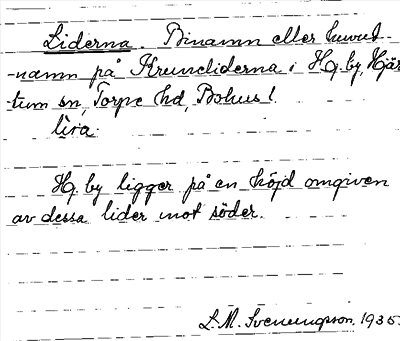 Liderna. Binamn eller huvud-
-namn på Kruneliderna i Hg. by, Hjär-
tum sn, Torpe hd, Bohus l.
lìra.
Hg. by ligger på en höjd omgiven
av dessa lider mot söder.
L. M. Svenungson. 1935.